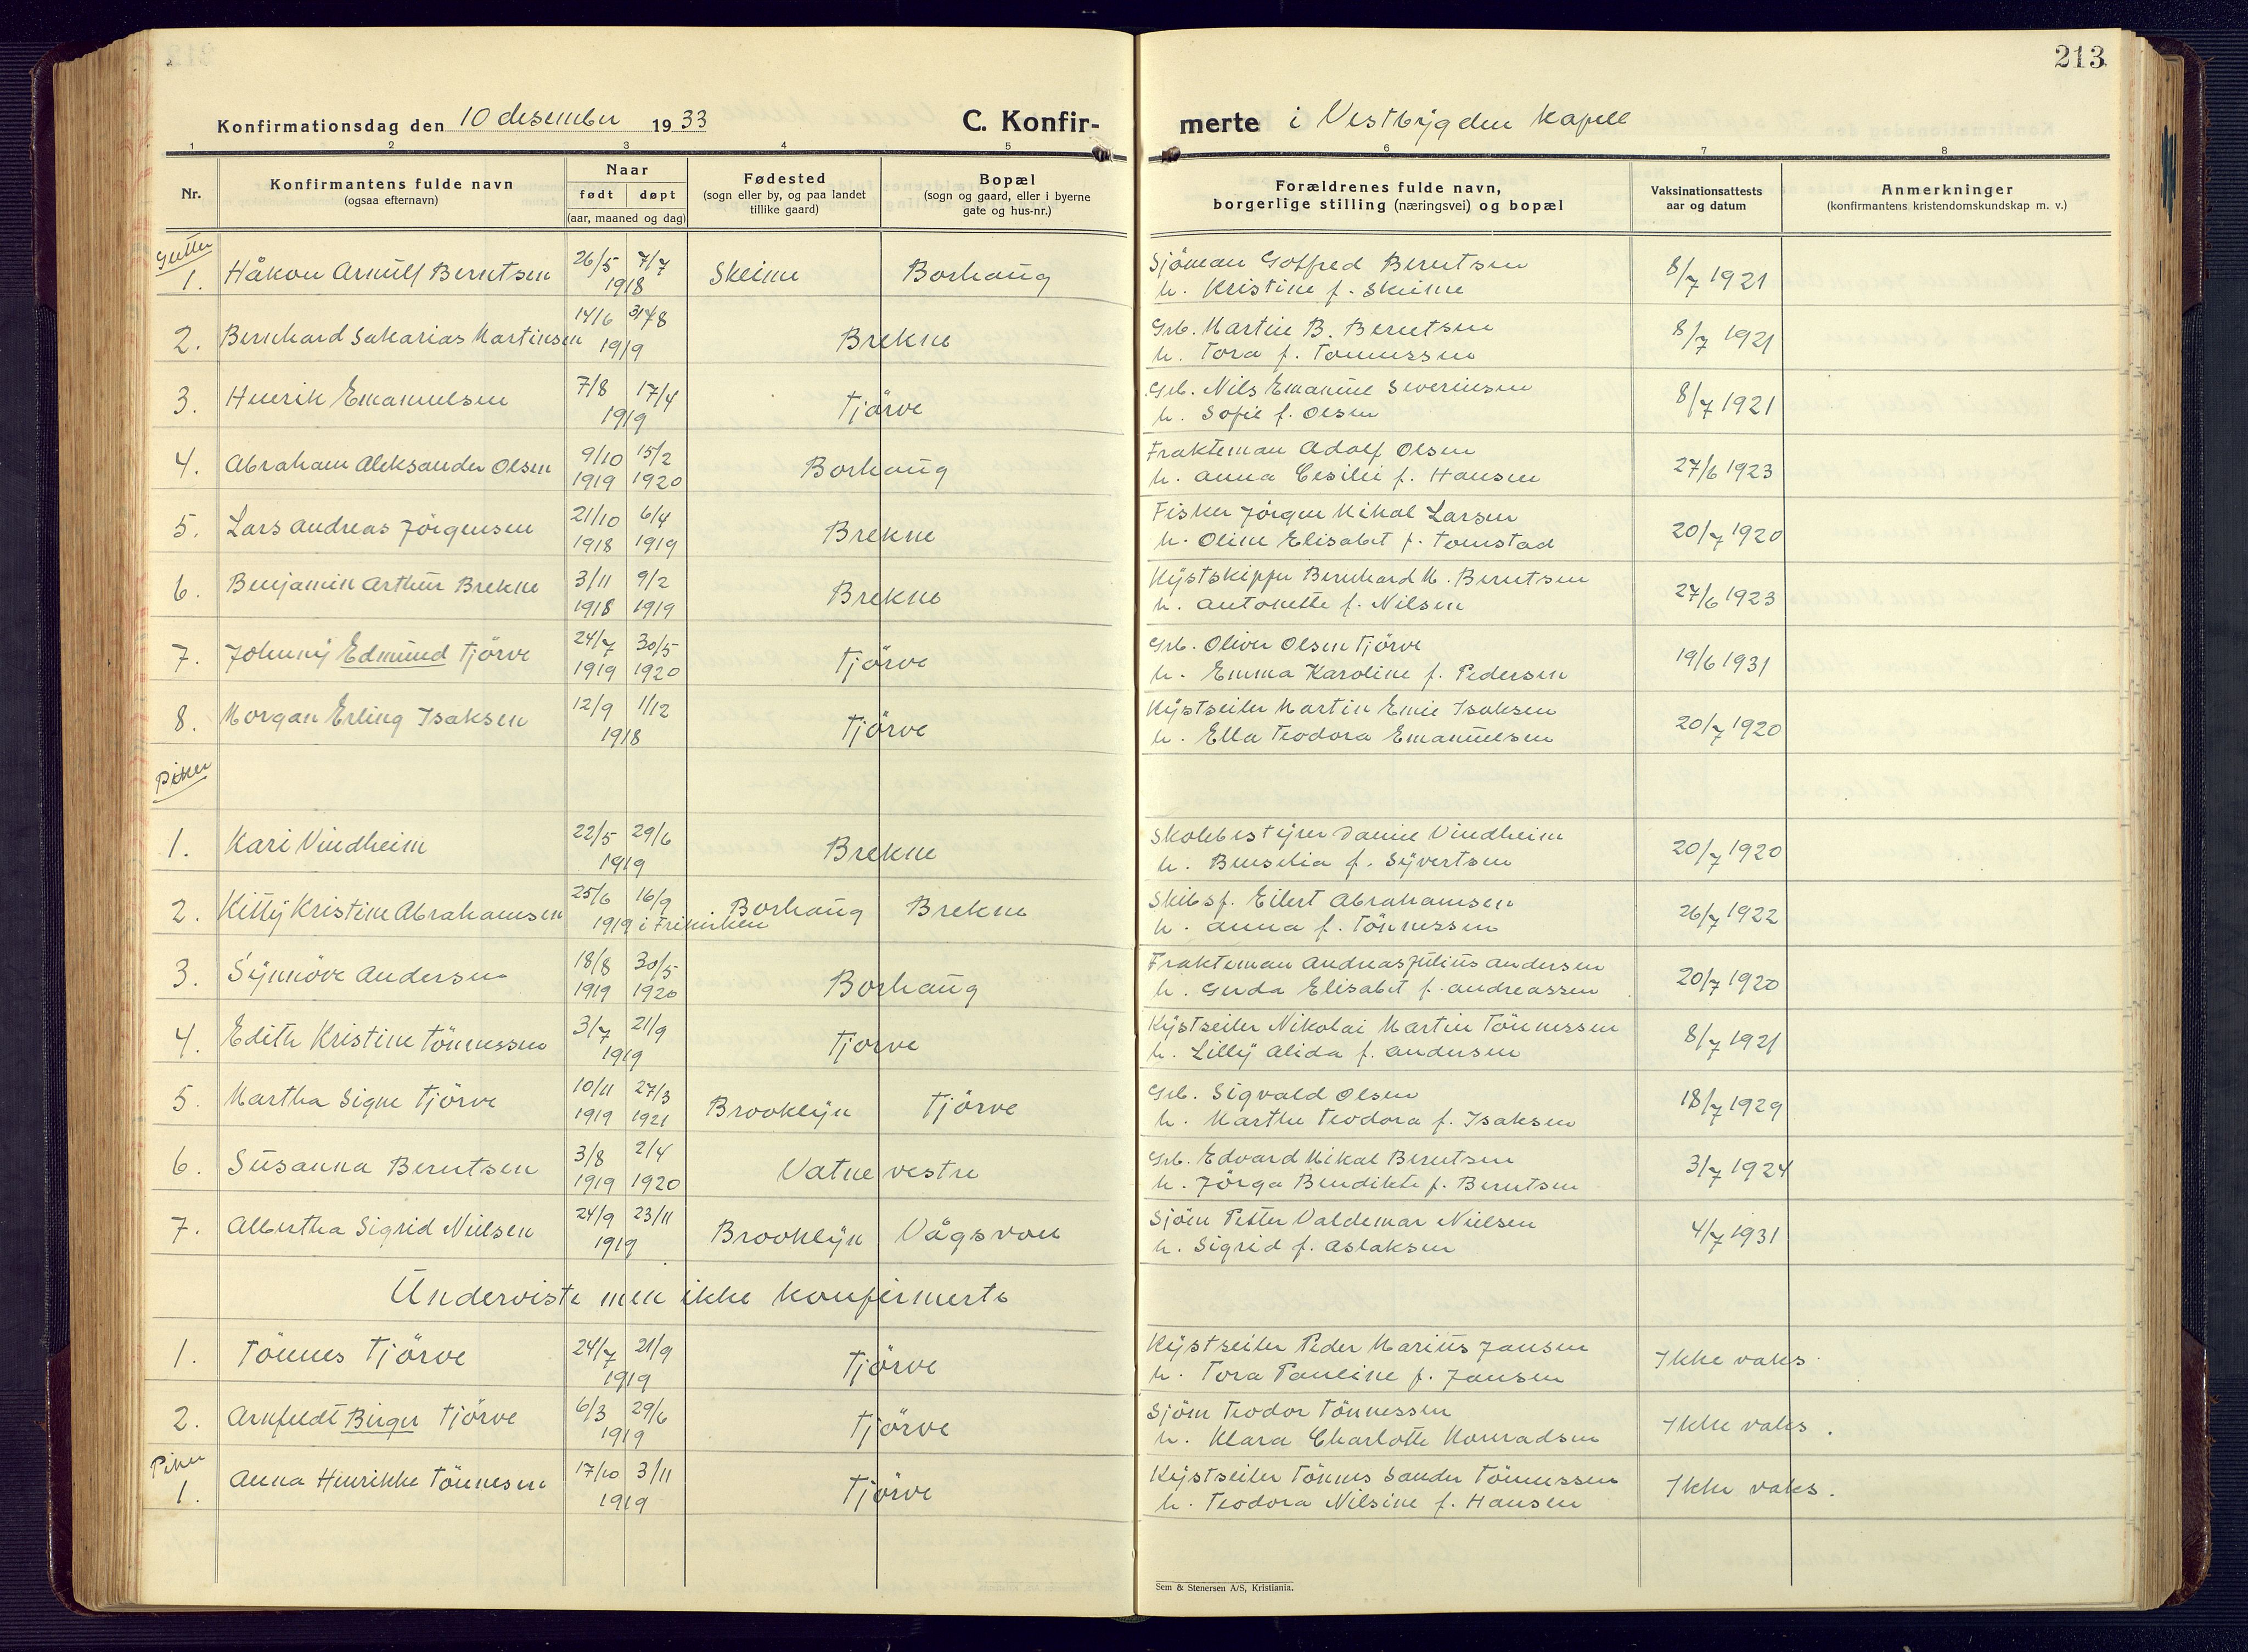 213
Konfirmationsdag den 10 desember 1933
C. Konfir-
merte i Vestbygden kapell
1 2 3 4 5 6 7 8
Nr.
Konfirmantens fulde navn
(ogsaa efternavn)
Naar
født døpt
(aar, maaned og dag)
Fødested
(sogn eller by, og paa landet
tillike gaard)
Bopæl
(sogn og gaard, eller i byerne
gate og hus-nr.)
Forældrenes fulde navn,
borgerlige stilling (næringsvei) og bopæl
Vaksinationsattests
aar og datum
Anmerkninger
(konfirmantens kristendomskundskap m. v.)
Gutter
1. Håkon Arnulf Berntsen 26/5 7/7 1918 Skeime Borhaug
Sjöman Gotfred Berntsen
h. Kristine f. Skeime
8/7 1921
2. Bernhard Sakarias Martinsen 14/6 31/8 1919 Brekne
Grb. Martin B. Berntsen
h. Tora f. Tönnessen
8/7 1921
3. Henrik Emanuelsen 7/8 17/4 1919 Tjörve
Grb. Nils Emanuel Severinsen
h. Sofie f. Olsen
8/7 1921
4. Abraham Aleksander Olsen 9/10 1919 15/2 1920 Borhaug
Frakteman Adolf Olsen
h. Anna Cesilie f. Hansen
27/6 1923
5. Lars Andreas Jörgensen 21/10 1918 6/4 1919 Brekne
Fisker Jörgen Mikal Larsen
h. Oline Elisabet f. Tomstad
20/7 1920
6. Benjamin Arthur Brekne 3/11 1918 9/2 1919 Brekne
Kystskipper Bernhard M. Berntsen
h. Antonette f. Nilsen
27/6 1923
7. Johnny Edmund Tjörve 24/7 1919 30/5 1920 Tjörve
Grb. Oliver Olsen Tjörve
h. Emma Karoline f. Pedersen
19/6 1931
8. Morgan Erling Isaksen 12/9 1/12 1918 Tjörve
Kystseiler Martin Emil Isaksen
h. Ella Teodora Emanuelsen
20/7 1920
Piker
1. Kari Vindheim 22/5 29/6 1919 Brekne
Skolebestyrer Daniel Vindheim
h. Benselia f. Syvertsen
20/7 1920
2. Kitty Kristine Abrahamsen 25/6 16/9 1919 i Frikirken Borhaug Brekne
Skibsf. Eilert Abrahamsen
h. Anna f. Tönnessen
26/7 1922
3. Synnöve Andersen 18/8 1919 30/5 1920 Borhaug
Frakteman Andreas Julius Andersen
h. Gerda Elisabet f. Andreassen
20/7 1920
4. Edith Kristine Tönnessen 3/7 21/9 1919 Tjörve
Kystseiler Nikolai Martin Tönnessen
h. Lilly Alida f. Andersen
8/7 1921
5. Martha Signe Tjörve 10/11 1919 27/3 1921 Brooklyn Tjörve
Grb. Sigvald Olsen
h. Marthe Teodora f. Isaksen
18/7 1929
6. Susanna Berntsen 3/8 1919 2/4 1920 Vatne vestre
Grb. Edvard Mikal Berntsen
h. Jörga Bendikte f. Berntsen
3/7 1924
7. Albertha Sigrid Nielsen 24/9 23/11 1919 Brooklyn Vågsvoll
Sjöm Petter Valdemar Nielsen
h. Sigrid f. Aslaksen
4/7 1931
Underviste men ikke konfirmerte
1. Tönnes Tjörve 24/7 21/9 1919 Tjörve
Kystseiler Peder Marius Jansen
h. Tora Pauline f. Jansen
Ikke vaks.
2. Arnfeldt Birger Tjörve 6/3 29/6 1919 Tjörve
Sjöm Teodor Tönnessen
h. Klara Charlotte Konradsen
Ikke vaks.
Piker
1. Anna Henrikke Tönnesen 17/10 3/11 1919 Tjörve
Kystseiler Tönnes Sander Tönnessen
h. Teodora Nilsine f. Hansen
Ikke vaks.
Sem & Stenersen A/S, Kristiania.